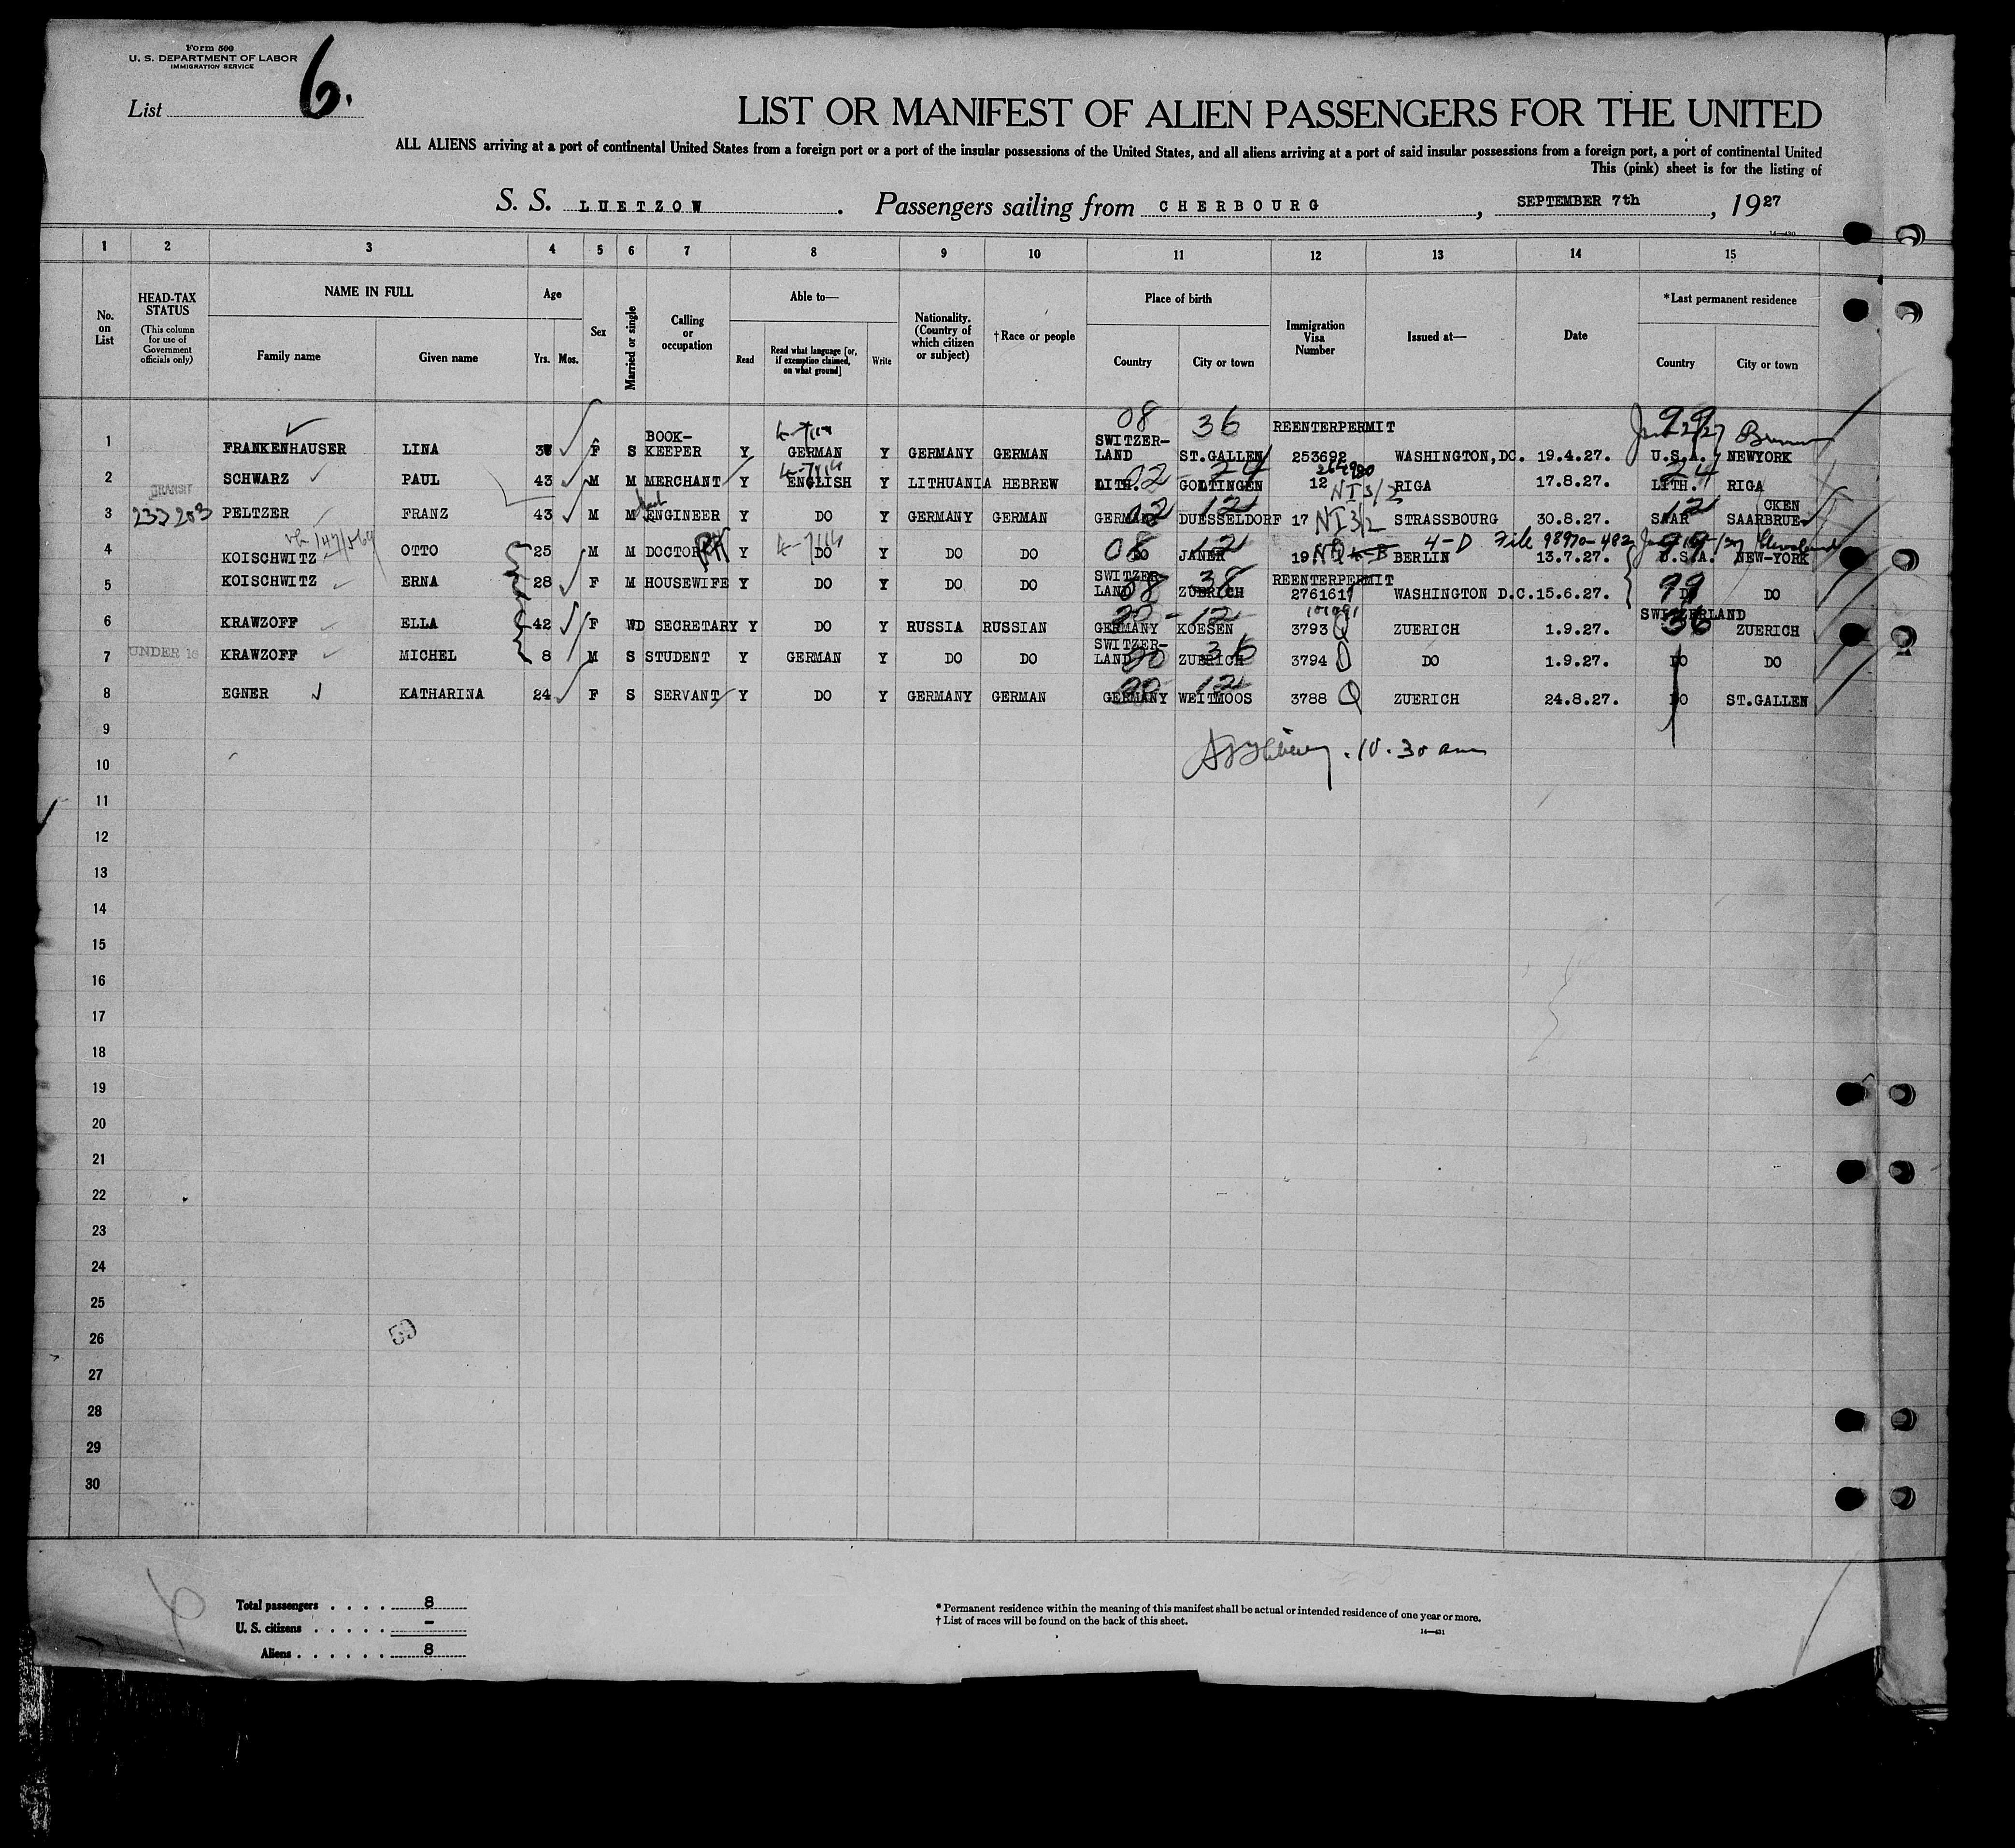 Form 500
U. S. DEPARTMENT OF LABOR
IMMIGRATION SERVICE
List 6.
LIST OR MANIFEST OF ALIEN PASSENGERS FOR THE UNITED
ALL ALIENS arriving at a port of continental United States from a foreign port or a port of the insular possessions of the United States, and all aliens arriving at a port of said insular possessions from a foreign port, a port of continental United
This (pink) sheet is for the listing of
S. S. LUETZOW . Passengers sailing from CHERBOURG , SEPTEMBER 7th , 1927
1 2 3 4 5 6 7 8 9 10 11 12 13 14 15
No. on List
HEAD-TAX STATUS (This column for use of Government officials only)
NAME IN FULL
Family name Given name
Age
Yrs. Mos.
Sex
Married or single
Calling or occupation
Able to—
Read Read what language [or, if exemption claimed, on what ground] Write
Nationality. (Country of which citizen or subject)
† Race or people
Place of birth
Country City or town
Immigration Visa Number
Issued at—
Date
* Last permanent residence
Country City or town
08 36 REENTERPERMIT 99
1 FRANKENHAUSER LINA F S BOOK-KEEPER Y GERMAN Y GERMANY GERMAN SWITZER-LAND ST.GALLEN 253692 WASHINGTON,DC. 19.4.27. U.S.A. NEWYORK
2 SCHWARZ PAUL 43 M M MERCHANT Y ENGLISH Y LITHUANIA HEBREW LITH. GOLTINGEN 12 NI 3/2 RIGA 17.8.27. LITH. RIGA
TRANSIT
3 PELTZER FRANZ 43 M M ENGINEER Y DO Y GERMANY GERMAN GERMANY DUESSELDORF 17 NI 3/2 STRASSBOURG 30.8.27. SAAR SAARBRUECKEN
4 KOISCHWITZ OTTO 25 M M DOCTOR Y DO Y DO DO DO JANER 19 NQ 4-D File 98970-482 BERLIN 13.7.27. U.S.A. NEW-YORK
5 KOISCHWITZ ERNA 28 F M HOUSEWIFE Y DO Y DO DO SWITZER-LAND ZUERICH REENTERPERMIT 276161 WASHINGTON D.C. 15.6.27. DO DO
6 KRAWZOFF ELLA 42 F WD SECRETARY Y DO Y RUSSIA RUSSIAN GERMANY KOESEN 3793 Q ZUERICH 1.9.27. SWITZERLAND ZUERICH
7 UNDER 16 KRAWZOFF MICHEL 8 M S STUDENT Y GERMAN Y DO DO SWITZER-LAND ZUERICH 3794 Q DO 1.9.27. DO DO
8 EGNER KATHARINA 24 F S SERVANT Y DO Y GERMANY GERMAN GERMANY WEITMOOS 3788 Q ZUERICH 24.8.27. DO ST.GALLEN
9
10 10.30 am
11
12
13
14
15
16
17
18
19
20
21
22
23
24
25
26
27
28
29
30
Total passengers . . . . 8
U. S. citizens . . . . . –
Aliens . . . . . . 8
* Permanent residence within the meaning of this manifest shall be actual or intended residence of one year or more.
† List of races will be found on the back of this sheet.
14—431